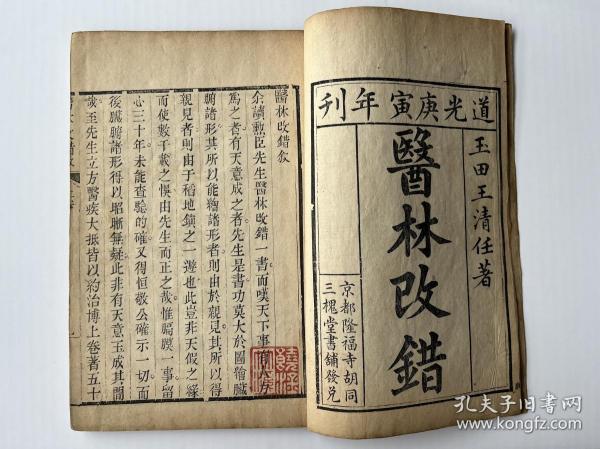 道光庚寅年刊
玉田王清任著
醫林改錯
京都隆福寺胡同
三槐堂書舖發兌
醫林改錯敘
余讀勲臣先生醫林改錯一書而嘆天下事有人力
為之者有天意成之者先生是書功莫大於圖繪臟
腑諸形其所以能繪諸形者則由於親見其所以得
親見者則由于稻地鎮之一遊也此豈非天假之緣
而使數千載之悞由先生而正之哉惟膈膜一事留
心三十年未能查驗的確又得恒敬公確示一切而
後臟腑諸形得以昭晰無疑此非有天意玉成其間
哉至先生立方醫疾大抵皆以約治博上卷著五十
孔夫子旧书网
www.kongfz.com